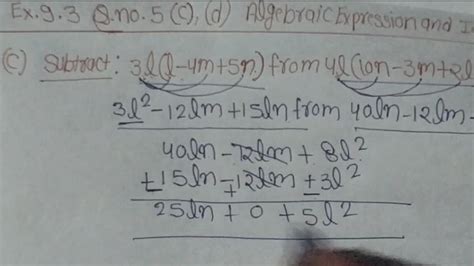 Ex.9.3 Q.no.5(C),(d) Algebraic Expression and I
(C) Subtract: 3l(l-4m+5n) from 4l(10n-3m+2l
3l²-12lm+15ln from 40ln-12lm-
40ln-12lm+8l²
+15ln-12lm+3l²
25ln+0+5l²